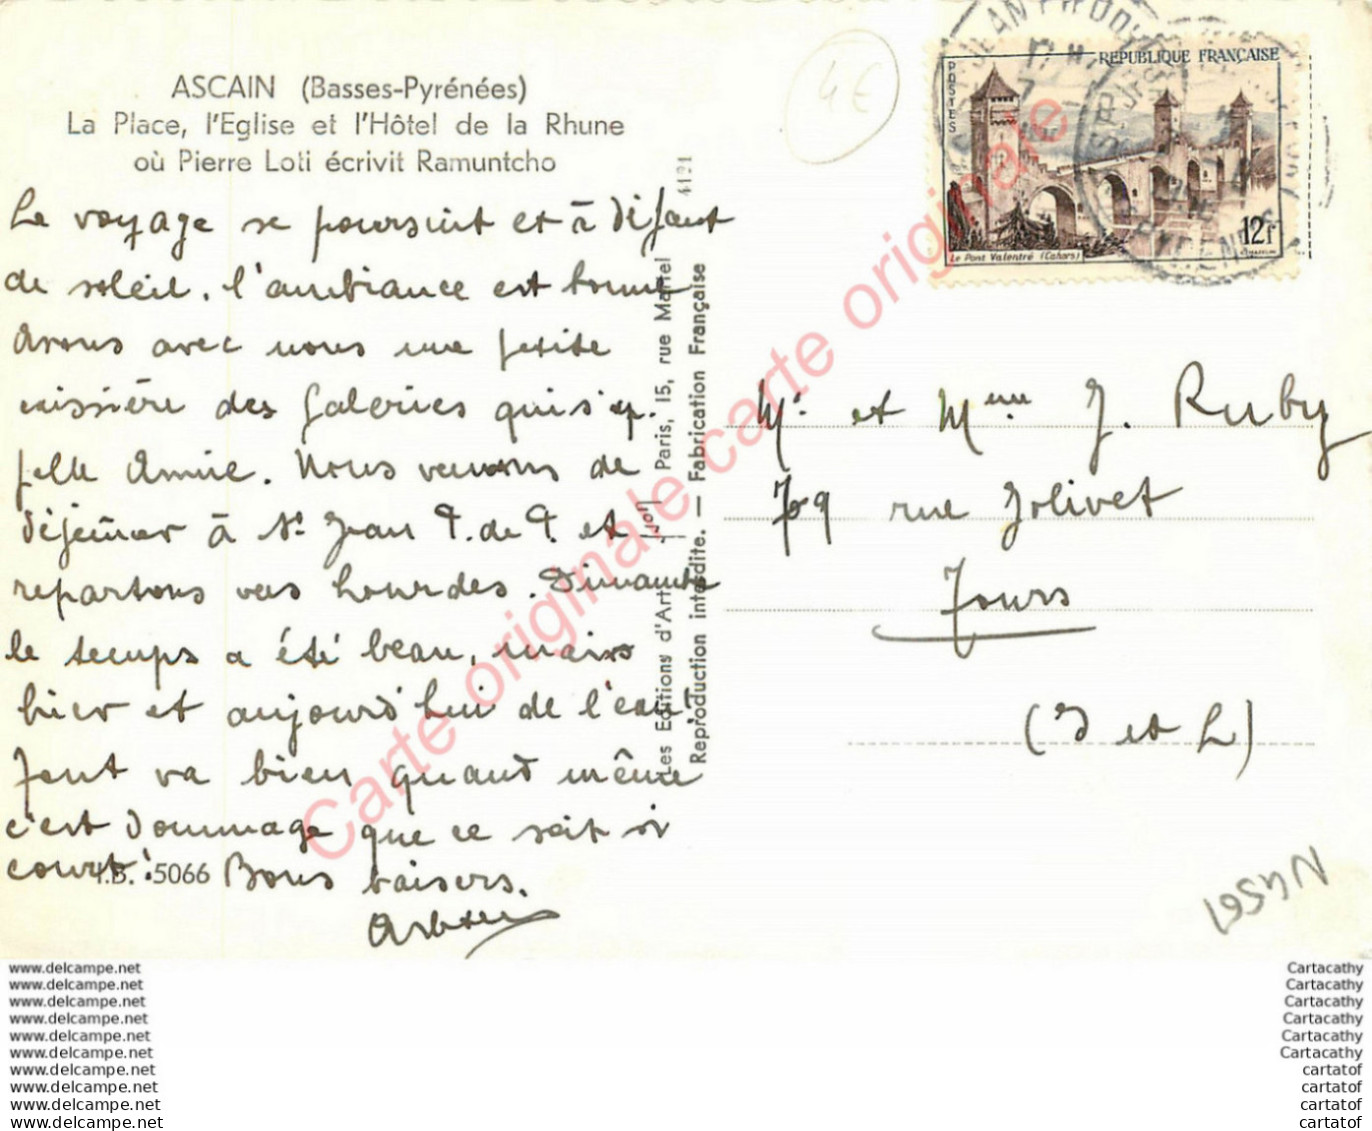 ASCAIN (Basses-Pyrénées)
La Place, l'Eglise et l'Hôtel de la Rhune
où Pierre Loti écrivit Ramuntcho
Le voyage se poursuit et à défaut
de soleil. l'ambiance est bonne
Avons avec nous une petite
caissière des Galeries qui s'ap.
pelle Annie. Nous venons de
déjeûner à St Jean P. de P. et
repartons vers Lourdes. Dimanche
le temps a été beau, mais
hier et aujourd'hui de l'eau!
Tout va bien quand même
c'est dommage que ce soit si
court! Bons baisers.
I.B. 5066
4121
Les Editions d'Art, Paris, 15, rue Martel
Reproduction interdite. — Fabrication Française
4€
REPUBLIQUE FRANÇAISE
POSTES
12f
Le Pont Valentré (Cahors)
Mr et Mme J. Ruby
79 rue Jolivet
Tours
(I et L)
N4561
Carte originale carte originale
www.delcampe.net
www.delcampe.net
www.delcampe.net
www.delcampe.net
www.delcampe.net
www.delcampe.net
www.delcampe.net
www.delcampe.net
www.delcampe.net
www.delcampe.net
Cartacathy
Cartacathy
Cartacathy
Cartacathy
Cartacathy
Cartacathy
cartatof
cartatof
cartatof
cartatof